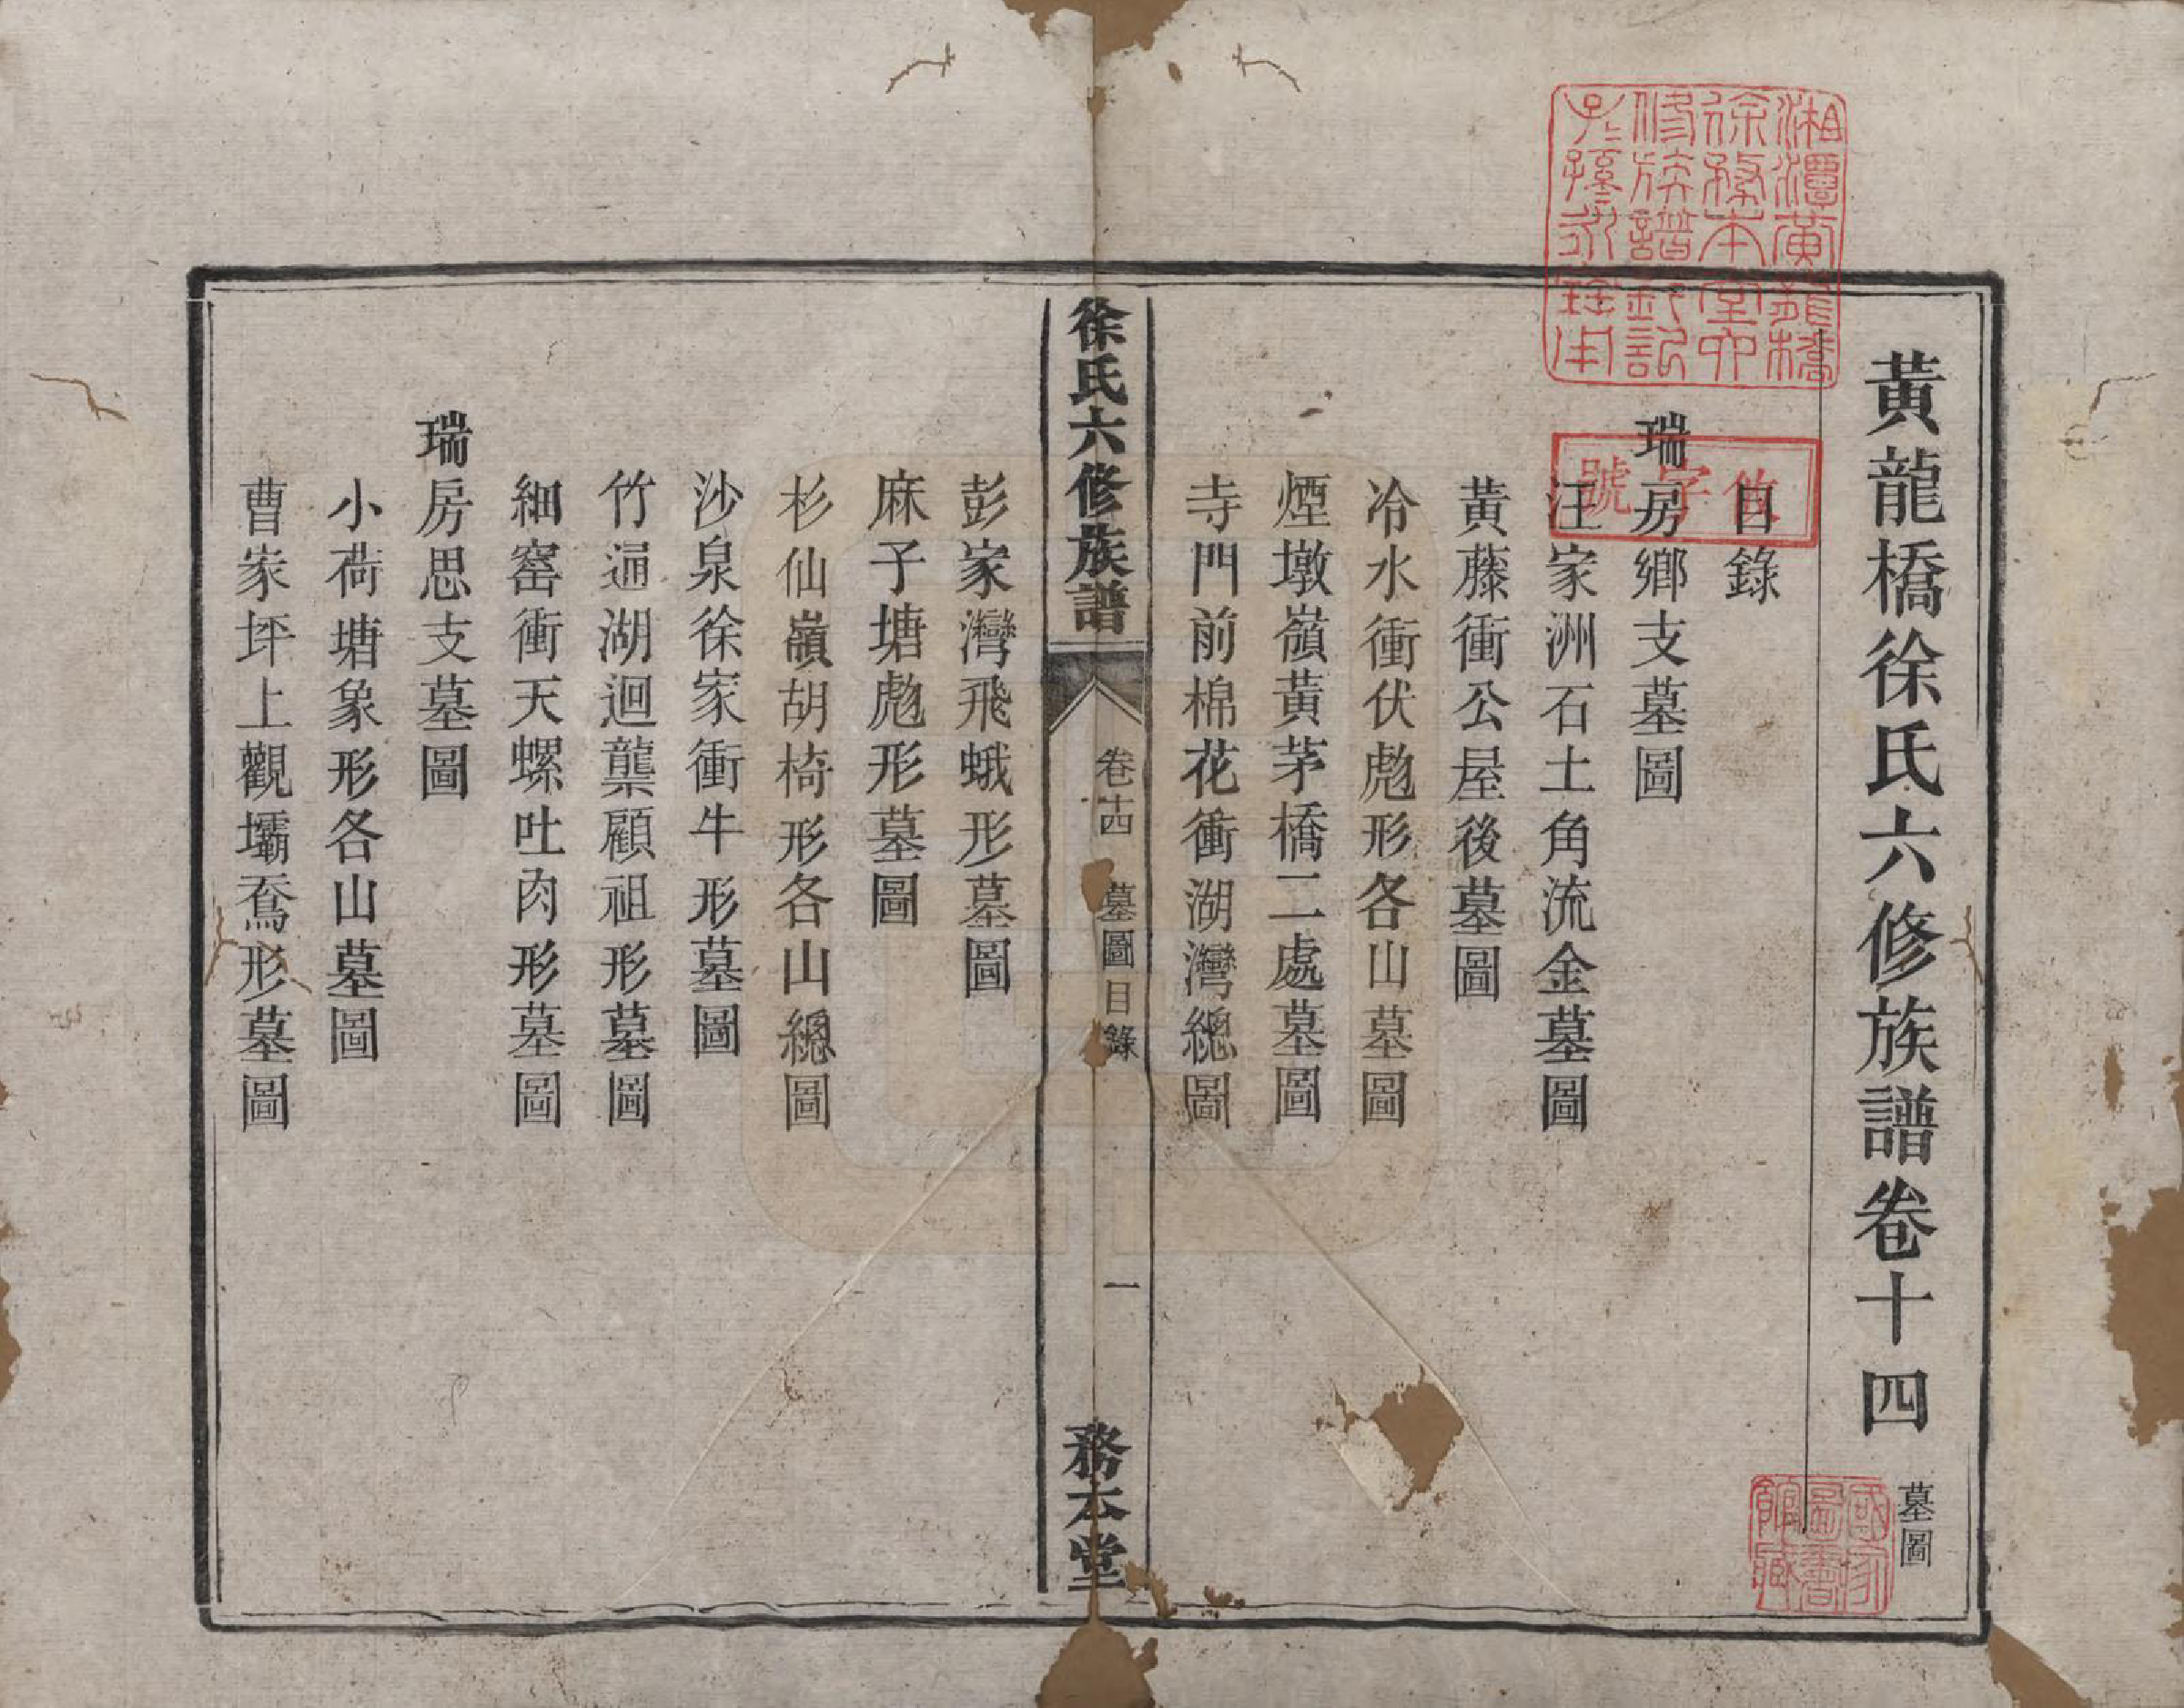 黃龍橋徐氏六修族譜卷十四 墓圖
目錄
瑞房鄉支墓圖
汪家洲石土角流金墓圖
黃藤衝公屋後墓圖
冷水衝伏彪形各山墓圖
煙墩嶺黃茅橋二處墓圖
寺門前棉花衝湖灣總圖
徐氏六修族譜
卷十四 墓圖目錄
一
務本堂
彭家灣飛蛾形墓圖
麻子塘彪形墓圖
杉仙嶺胡椅形各山總圖
沙泉徐家衝牛形墓圖
竹逼湖迴龍顧祖形墓圖
細窰衝天螺吐肉形墓圖
瑞房思支墓圖
小荷塘象形各山墓圖
曹家坪上觀壩形墓圖
湘潭黃龍橋
徐務本堂六
修族譜鈐記
子孫永寶用
字號
國家圖書館藏